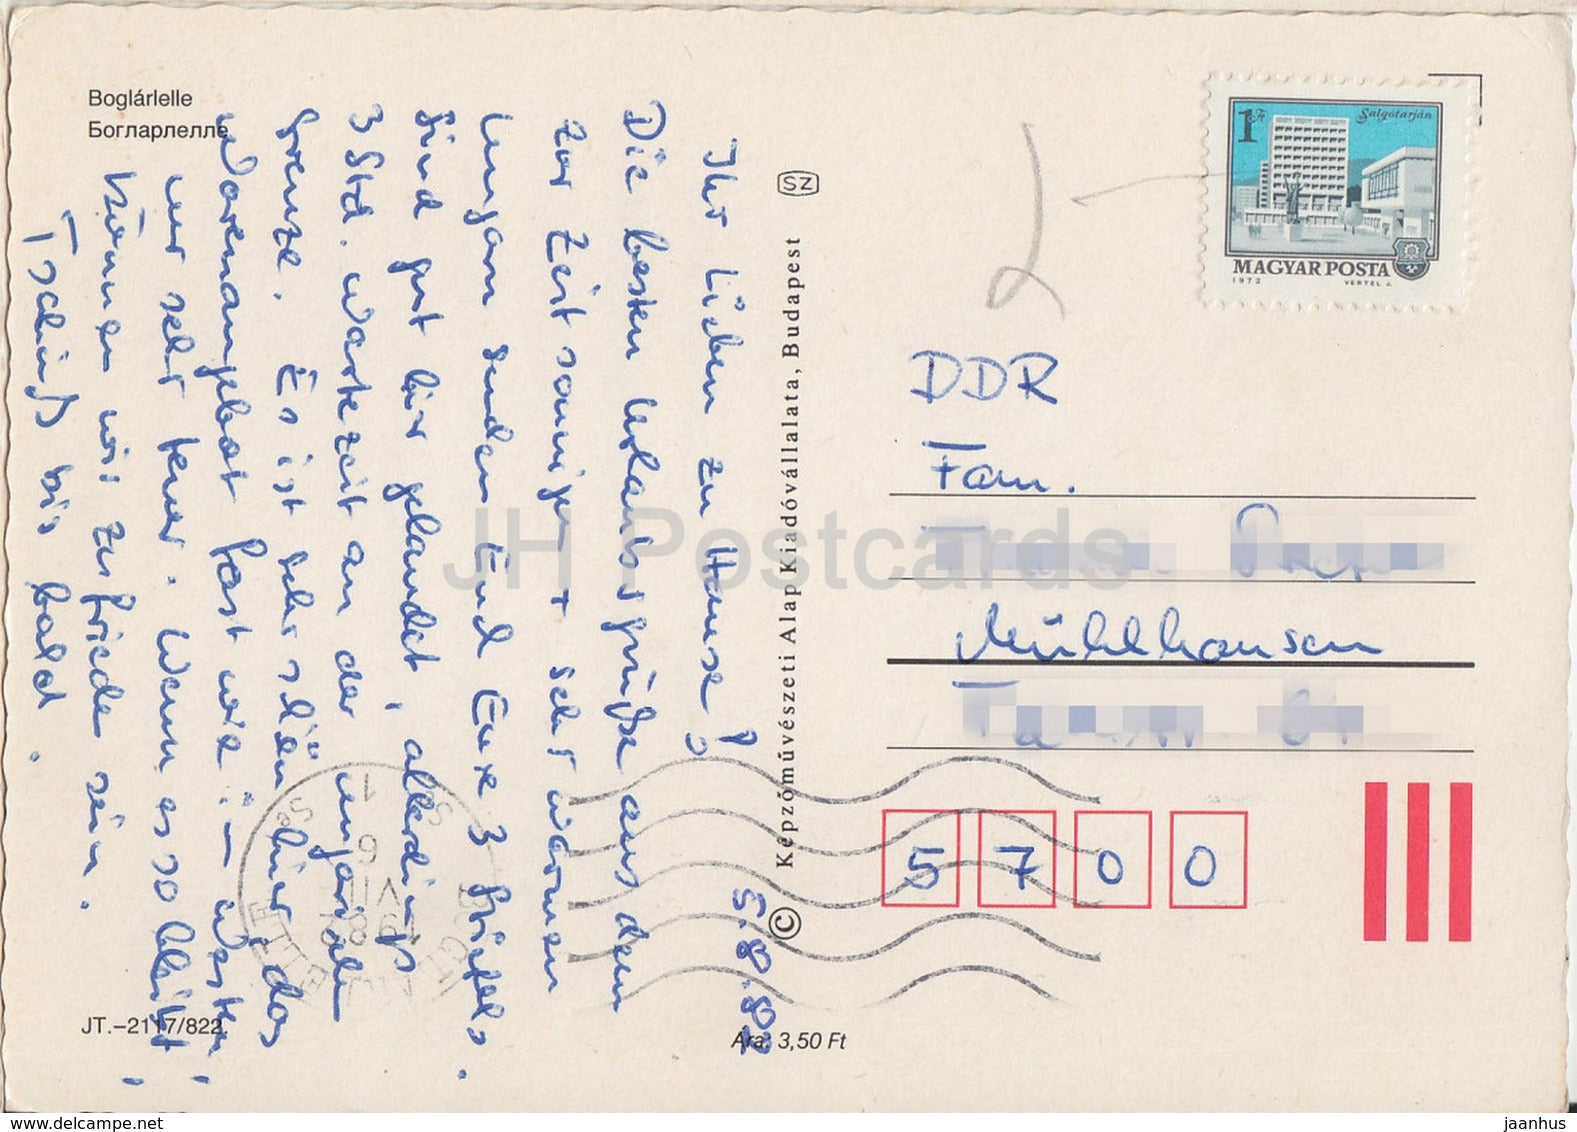 Boglárlelle
Богларлелле
5.8.82
Ihr Lieben zu Hause!
Die besten Urlaubsgrüße aus dem
zur Zeit sonnigen + sehr warmen
Ungarn senden Euch Eure 3
Sind gut hier gelandet, allerdings
3 Std. Wartezeit an der ungarischen
Grenze. Es ist sehr schön hier, das
Warenangebot fast wie im Westen,
nur sehr teuer. Wenn es so bleibt,
können wir zufrieden sein.
Tschüß bis bald.
JT.–2117/822.
Ára: 3,50 Ft
SZ
© Képzőművészeti Alap Kiadóvállalata, Budapest
1 Ft
Salgótarján
MAGYAR POSTA
1972
VERTEL J.
DDR
Fam.
Mühlhausen
5700
JH Postcards
www.delcampe.net
jaanhus